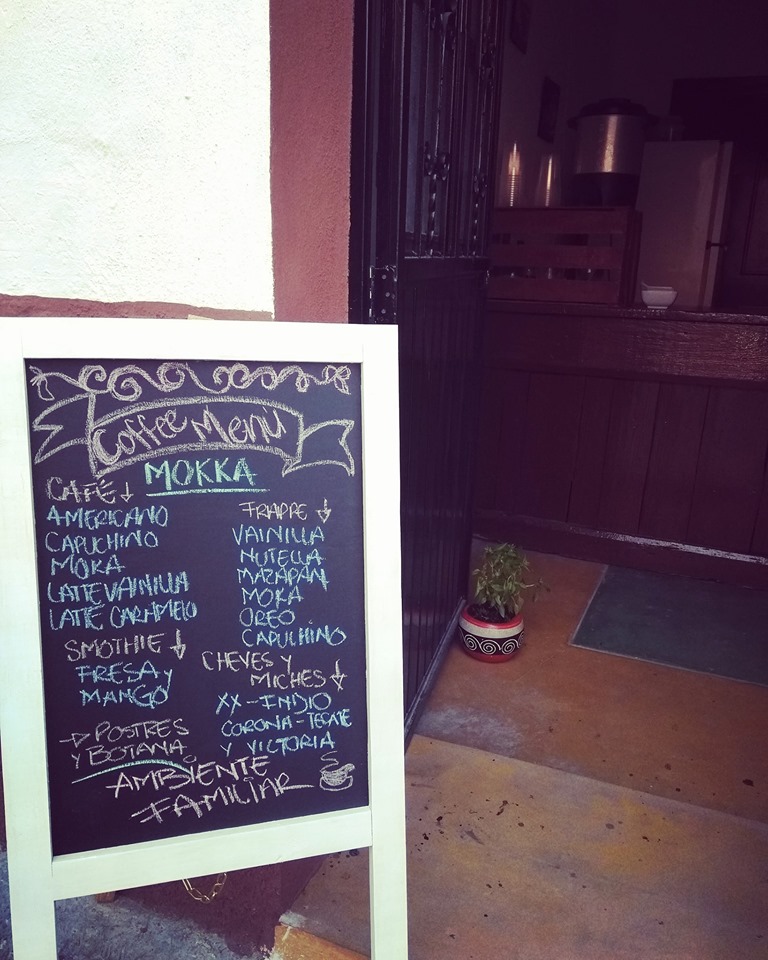 Coffee Menú
MOKKA
CAFÉ ↓
AMERICANO
CAPUCHINO
MOKA
LATTE VAINILLA
LATTE CARAMELO
SMOTHIE ↓
FRESA y
MANGO
→ POSTRES
Y BOTANA
FRAPPE ↓
VAINILLA
NUTELLA
MAZAPAN
MOKA
OREO
CAPUCHINO
CHEVES Y
MICHES ↓
XX - INDIO
CORONA - TECATE
Y VICTORIA
AMBIENTE
FAMILIAR